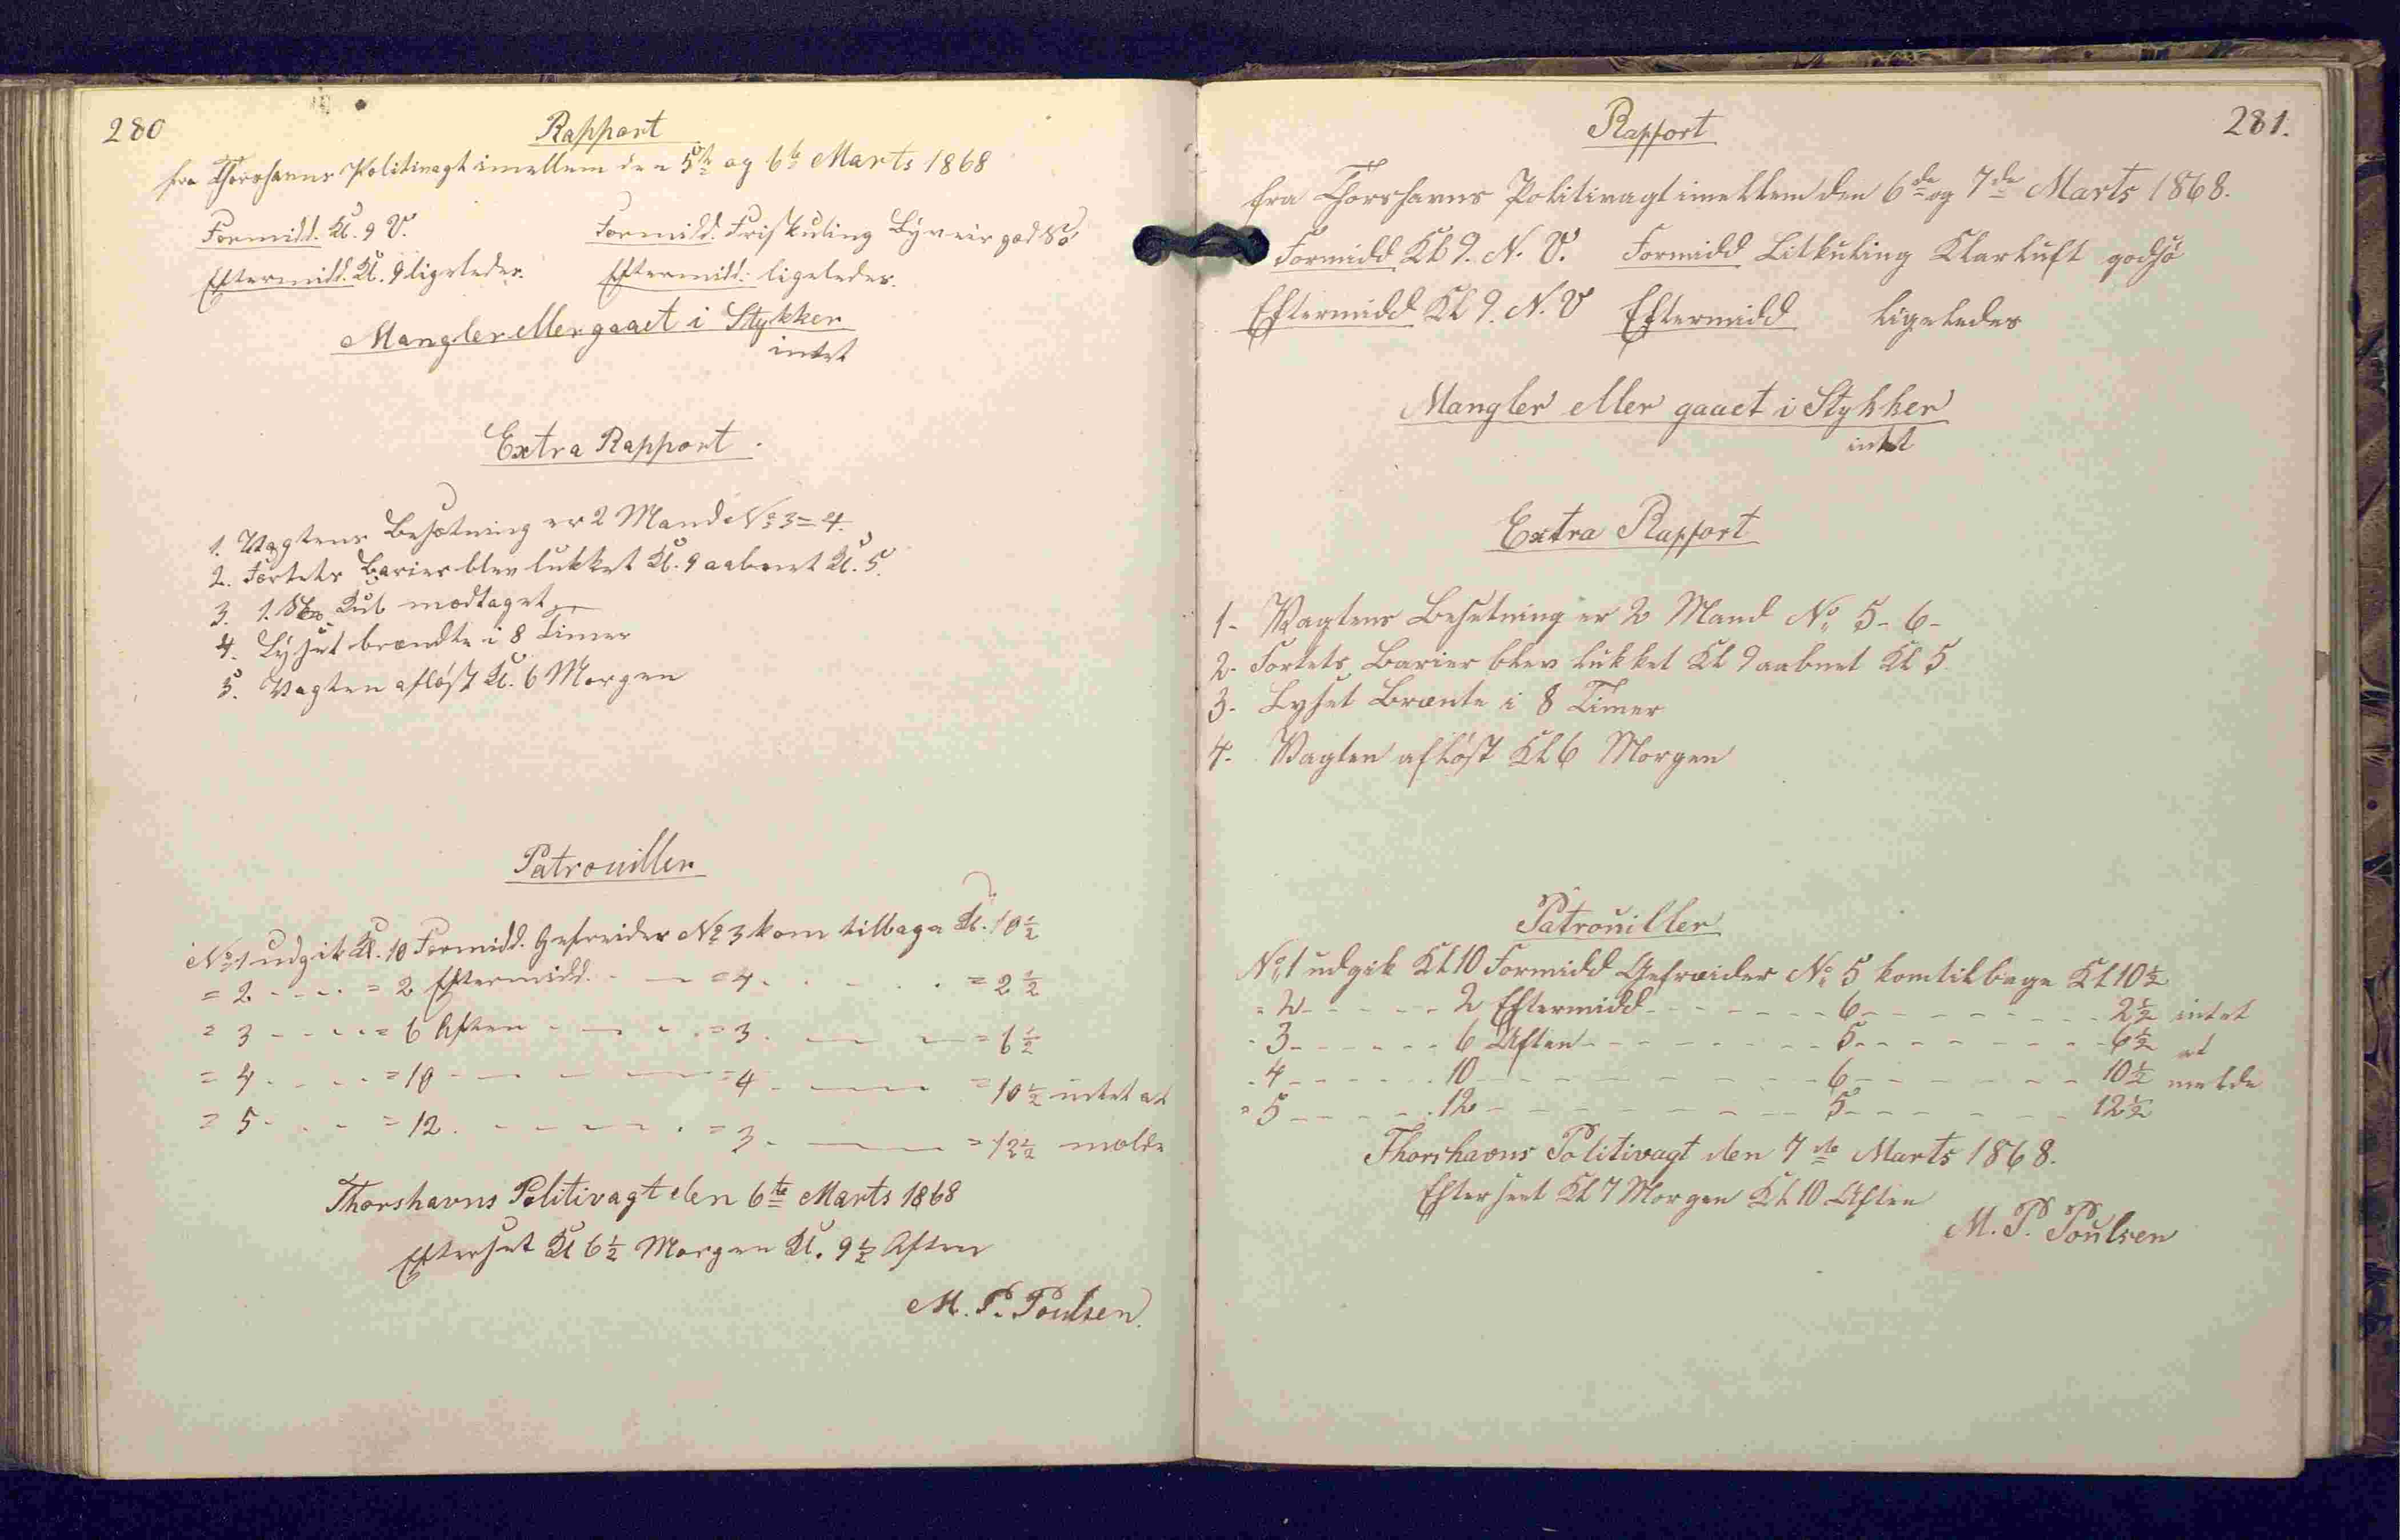 280
Rapport
fra Thorshavns Politivagt imellem den 5te og 6te Marts 1868
Formidd. Kl. 9 V. Formidd. Friskuling Bÿveir god Sø
Eftermidd. Kl. 9 ligeledes. Eftermidd: ligeledes.
Mangler eller gaaet i Stykker
intet
Extra Rapport.
1. Vagtens Besætning er 2 Mand No 3 = 4.
2. Fortets Barier blev lukket Kl. 9 aabnet Kl. 5.
3. 1. Kul modtaget
4. Lÿset brændte i 8 Timer
5. Vagten afløst Kl. 6 Morgen
Patrouiller
No 1 udgik Kl. 10 Formidd. Gefreider No 3 kom tilbage Kl. 10½
= 2 - - - - = 2 Eftermidd. - — = 4 - - - - = 2½
= 3 - - - - = 6 Aften - — - - = 3 - — — = 6½
= 4 - - - - = 10 - — - — = 4 - — = 10½ intet at
= 5 - - - = 12 - - - - - = 3 - — = 12½ melde
Thorshavns Politivagt den 6te Marts 1868
Efterset Kl 6½ Morgen Kl. 9½ Aften
M. P. Poulsen.
281.
Rapport
fra Thorshavns Politivagt imellem den 6de og 7de Marts 1868.
Formidd Kl 9. N. V. Formidd Litkuling Klarluft godsø
Eftermidd Kl 9. N. V Eftermidd ligeledes
Mangler eller gaaet i Stykker
intet
Extra Rapport
1- Vagtens Besetning er 2 Mand No 5 - 6 -
2- Fortets Barier blev lukket Kl 9 aabnet Kl 5.
3- Lyset Brænte i 8 Timer
4. Vagten afløst Kl 6 Morgen
Patrouiller
No 1 udgik Kl 10 Formidd Gefreider No 5 kom tilbage Kl 10½
" 2 - - - - - 2 Eftermidd - - - - - 6 - - - - - 2½ intet
" 3 - - - - - 6 Aften - - - - - 5 - - - - - 6½ at
" 4 - - - - - 10 - - - - - 6 - - - - - 10½ melde
" 5 - - - - - 12 - - - - - 5 - - - - - 12½
Thorshavns Politivagt den 7de Marts 1868.
Efterseet Kl 7 Morgen Kl 10 Aften
M. P. Poulsen